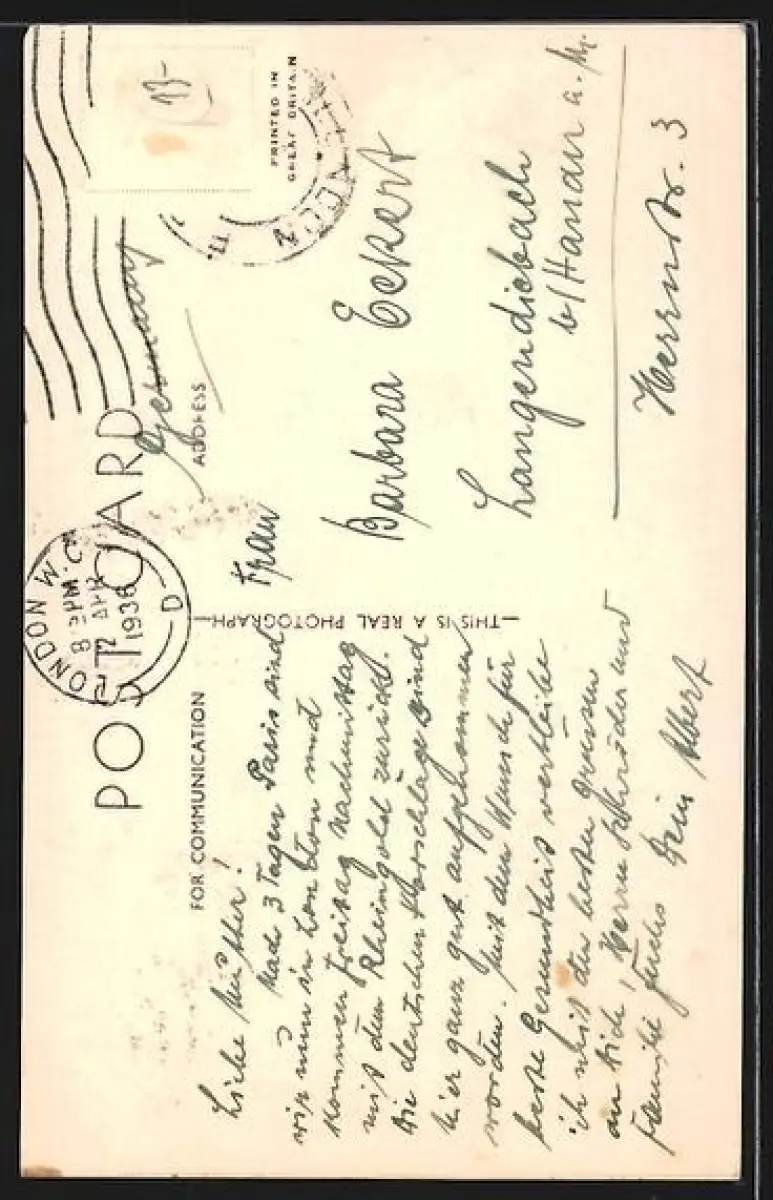 POST CARD
FOR COMMUNICATION
ADDRESS
THIS IS A REAL PHOTOGRAPH
PRINTED IN
GREAT BRITAIN
13-
LONDON W.
8 PM
2 APR
1936
D
Germany
Liebe Mutter!
Nach 3 Tagen Paris sind
wir nun in London und
kommen Freitag Nachmittag
mit dem Rheingold zurück.
Die deutschen Vorschläge sind
hier ganz gut aufgenommen
worden. Mit dem Wunsch für
beste Gesundheit verbleibe
ich mit den besten Grüssen
an Dich, Herrn Schröder und
Familie Fuchs Dein Albert
Frau
Barbara Eckert
Langendiebach
b/Hanau a. M.
Herrnstr. 3